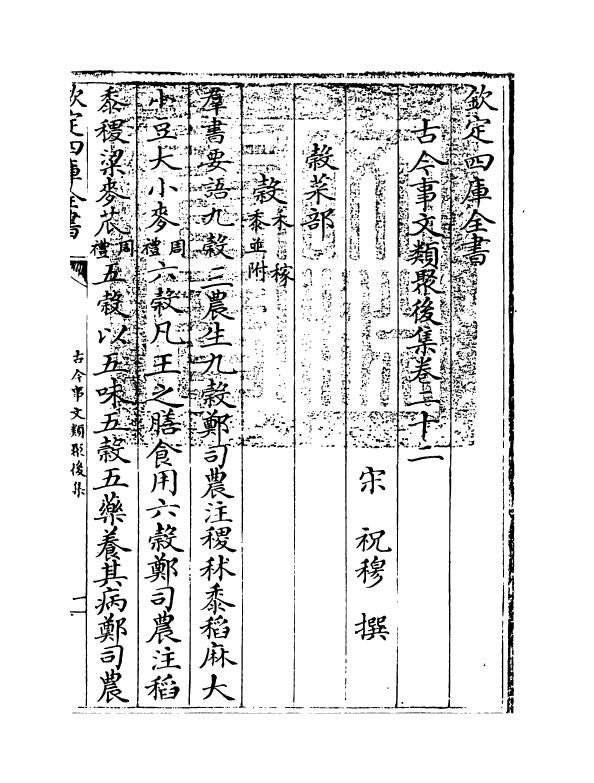 欽定四庫全書
古今事文類聚後集卷二十二
宋　祝穆　撰
穀菜部
穀禾稼黍並附
羣書要語九穀三農生九穀鄭司農注稷秫黍稻麻大
小豆大小麥周禮六穀凡王之膳食用六穀鄭司農注稻
黍稷梁麥苽周禮五穀以五味五穀五藥養其病鄭司農
欽定四庫全書
古今事文類聚後集
一